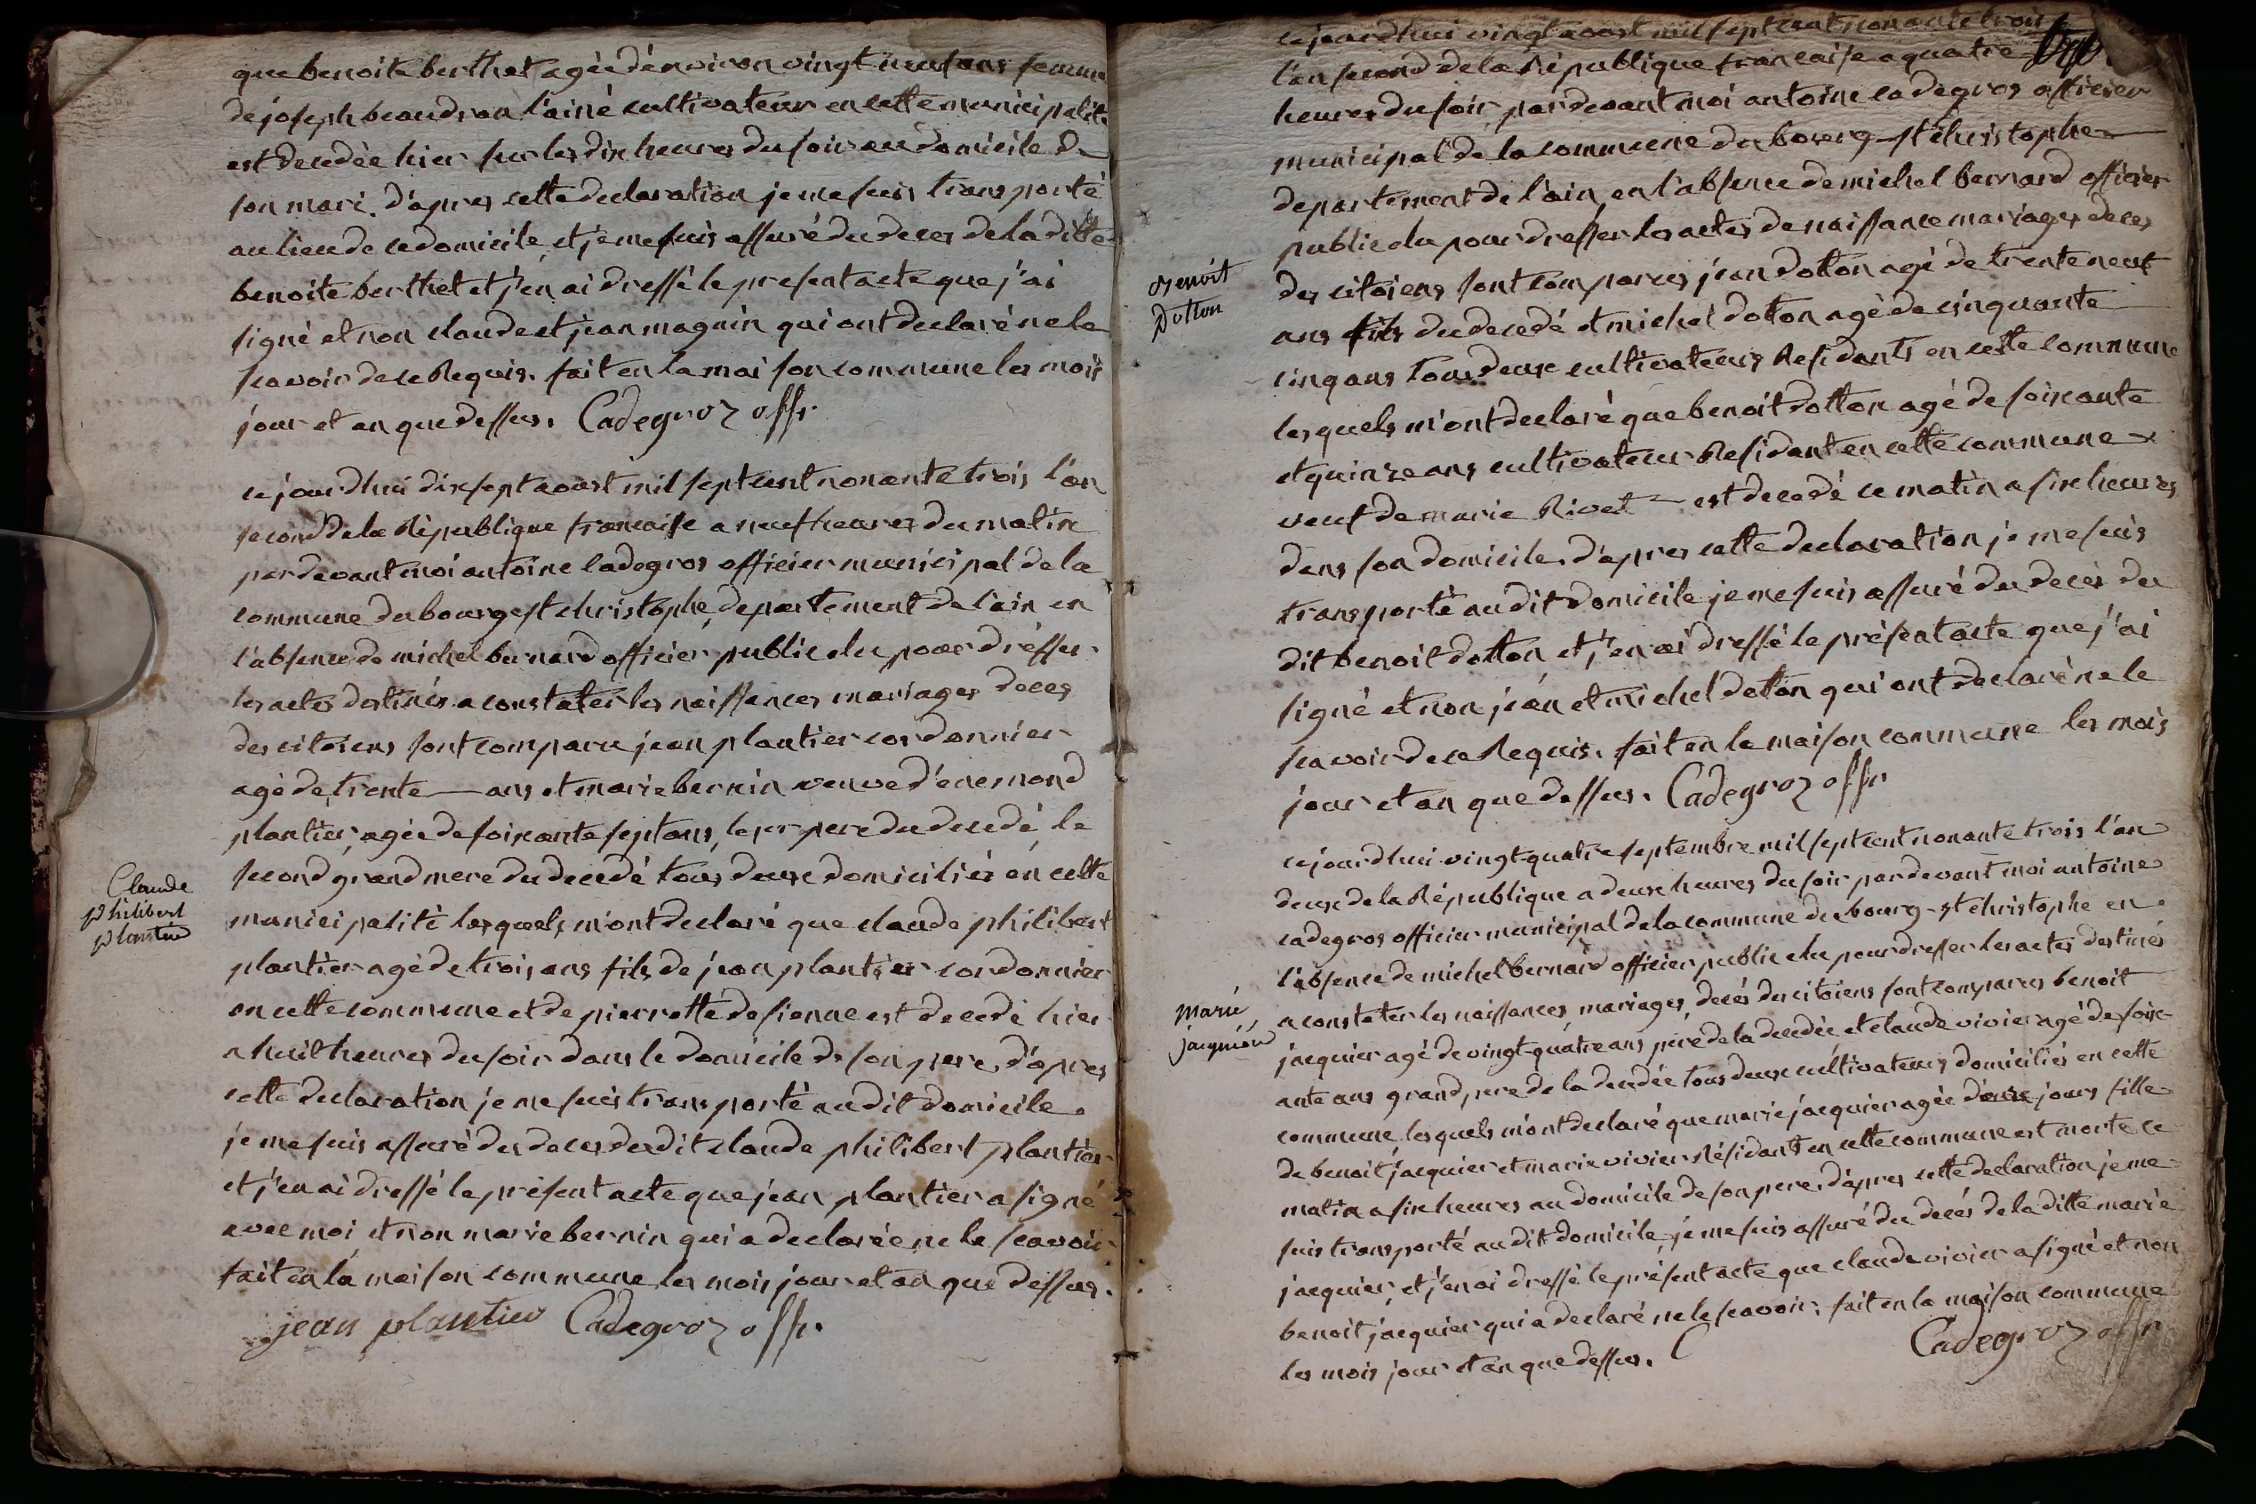 que benoite berthet agèe d'environ vingt neuf ans femme
de joseph beaudron l'ainé cultivateur en cette municipalité
est decedée hier sur les dix heures du soir au domicile de
son mari. d'apres cette declaration je me suis transporté
au lieu de ce domicile, et je me suis assuré du deces de la ditte
benoite berthet et j'en ai dressé le present acte que j'ai
signé et non claude et jean magnin qui ont declaré ne le
scavoir de ce Requis. fait en la maison commune les mois
jour et an que dessus. Cadegroz offr.
ce jourd'hui dix sept aoust mil sept cent nonante trois l'an
second de la République francaise a neuf heures du matin
par devant moi antoine cadegros officier municipal de la
commune du bourg st christophe, departement de l'ain en
l'absence de michel bernard officier public elu pour dresser
les actes destinés a constater les naissances mariages deces
des citoiens sont comparu jean plantier cordonnier
agé de trente ans et marie bernin veuve d'enemond
plantier, agèe de soixante sept ans, le 1er pere du decedé, le
second grand mere du decedé tous deux domiciliés en cette
municipalité lesquels m'ont declaré que claude philibert
Claude
philibert
plantier
plantier agé de trois ans fils de jean plantier cordonnier
en cette commune et de pierrette desienne est decedé hier
a huit heures du soir dans le domicile de son pere, d'apres
cette declaration je me suis transporté au dit domicile
je me suis assuré du deces du dit claude philibert plantier
et j'en ai dressé le présent acte que jean plantier a signé
avec moi et non marie bernin qui a declaréé ne le scavoir
fait en la maison commune les mois jour et an que dessus.
jean plantier Cadegroz offr.
ce jourd'hui vingt aoust mil sept cent nonante trois
l'an second de la République francaise a quatre
heures du soir, par devant moi antoine cadegros officier
municipal de la commune du bourg st christophe
departement de l'ain, en l'absence de michel bernard officier
public elu pour dresser les actes de naissance mariages deces
benoit
Dotton
des citoiens sont comparus jean dotton agé de trente neuf
ans fils du decedé et michel dotton agé de cinquante
cinq ans tous deux cultivateurs Residants en cette commune
lesquels m'ont declaré que benoit dotton agé de soixante
et quinze ans cultivateur Residant en cette commune
veuf de marie Rivet est decedé ce matin a six heures
dans son domicile. d'apres cette declaration je me suis
transporté au dit domicile je me suis assuré du decès du
dit benoit dotton et j'en ai dressé le présent acte que j'ai
signé et non jean et michel dotton qui ont declaré ne le
scavoir de ce Requis. fait en la maison commune les mois
jour et an que dessus. Cadegroz offr.
ce jourd'hui vingt-quatre septembre mil sept cent nonante trois l'an
deux de la République a deux heures du soir par devant moi antoine
cadegros officier municipal de la commune du bourg-st christophe en
l'absence de michel bernard officier public elu pour dresser les actes destinés
a constater les naissances, mariages, decés des citoiens sont comparus benoit
marie
jacquier
jacquier agé de vingt-quatre ans pere de la decedée, et claude vivier agé de soix-
ante ans grand pere de la decedée tous deux cultivateurs domiciliés en cette
commune, lesquels m'ont declaré que marie jacquier agée deux jours fille
de benoit jacquier et marie vivier Résidants en cette commune est morte ce
matin a six heures au domicile de son pere. d'apres cette declaration je me
suis transporté au dit domicile, je me suis assuré du decés de la ditte marie
jacquier, et j'en ai dressé le présent acte que claude vivier a signé et non
benoit jacquier qui a declaré ne le scavoir. fait en la maison commune
les mois jour et an que dessus. Cadegroz offr